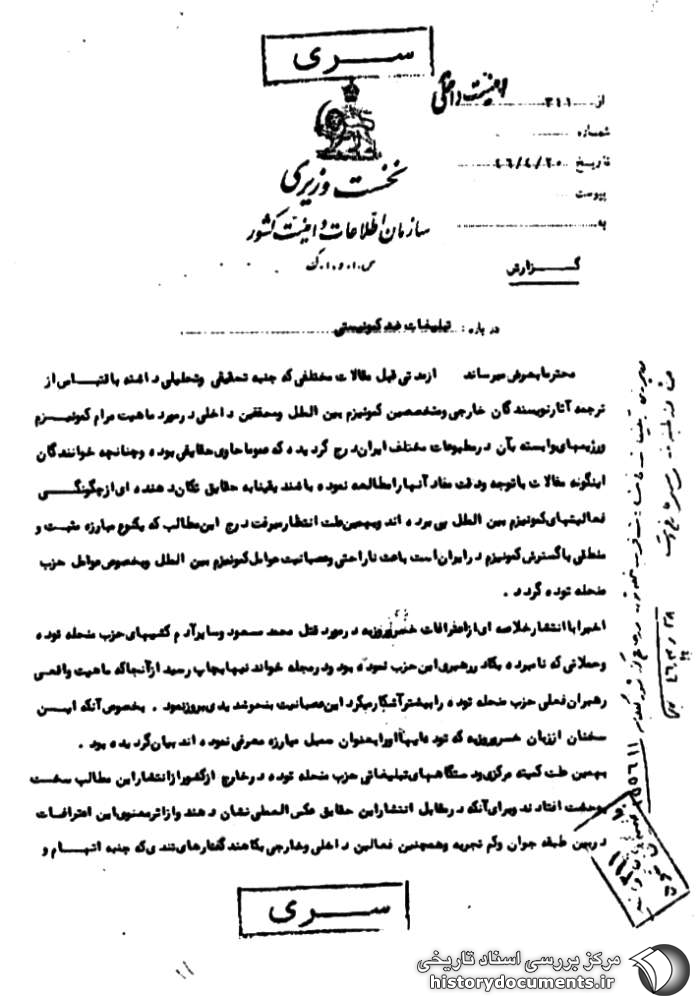 سری
امنیت داخلی
از ۳۱۱
شماره
تاریخ ۴۶/۴/۲۰
پیوست
به
نخست وزیری
سازمان اطلاعات و امنیت کشور
س.ا.و.ا.ک
گزارش
درباره : تبلیغات ضد کمونیستی
محترما بعرض میرساند ازمدتی قبل مقالات مختلفی که جنبه تحقیقی وتحلیلی داشته با اقتباس از
ترجمه آثار نویسندگان خارجی ومتخصصین کمونیزم بین الملل ومحققین داخلی درمورد ماهیت مرام کمونیزم
ورژیمهای وابسته بآن درمطبوعات مختلف ایران درج گردیده که عموما حاوی حقایقی بوده وچنانچه خوانندگان
اینگونه مقالات باتوجه ودقت مفاد آنها را مطالعه نموده باشند یقینا به حقایق تکان دهنده ای از چگونگی
فعالیتهای کمونیزم بین الملل پی برده اند وبهمین علت انتظار میرفت درج این مطالب که یکنوع مبارزه مثبت و
منطقی باگسترش کمونیزم درایران است باعث ناراحتی وعصبانیت عوامل کمونیزم بین الملل وبخصوص عوامل حزب
منحله توده گردد .
اخیرا با انتشار خلاصه ای از اعترافات خسروروزبه درمورد قتل محمد مسعود وسایر آدم کشیهای حزب منحله توده
وحملاتی که نامبرده بکادر رهبری این حزب نموده بود ودرمجله خواندنیها بچاپ رسید ازآنجا که ماهیت واقعی
رهبران فعلی حزب منحله توده را بیشتر آشکار میکرد این عصبانیت بنحو شدیدی بروز نمود . بخصوص آنکه ایـن
سخنان اززبان خسروروزبه که توده ایها او را بعنوان سمبل مبارزه معرفی نموده اند بیان گردیده بود .
بهمین علت کمیته مرکزی ودستگاههای تبلیغاتی حزب منحله توده درخارج ازکشور ازانتشار این مطالب سخت
بوحشت افتادند وبرای آنکه درمقابل انتشار این حقایق عکس العملی نشان دهند وازاثر معنوی این اعترافات
دربین طبقه جوان وکم تجربه وهمچنین فعالین داخلی وخارجی بکاهند گفتارهای تندی که جنبه اتهـام و
سری
مرکز بررسی اسناد تاریخی
historydocuments.ir